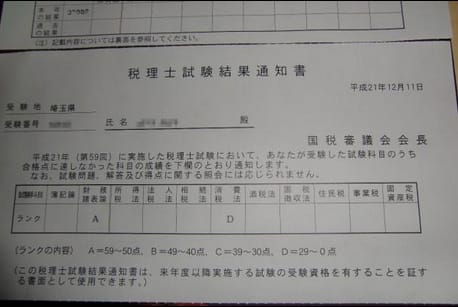 本年
の結果
過去
の結果
(注)記載内容については裏面を参照してください。
税理士試験結果通知書
平成21年12月11日
受験地 埼玉県
受験番号 氏名 殿
国税審議会会長
平成21年(第59回)に実施した税理士試験において、あなたが受験した試験科目のうち
合格点に達しなかった科目の成績を下欄のとおり通知します。
なお、試験問題、解答及び得点に関する照会には応じられません。
試験科目 簿記論 財務諸表論 所得税法 法人税法 相続税法 消費税法 酒税法 国税徴収法 住民税 事業税 固定資産税
ランク A D
(ランクの内容) A=59~50点、B=49~40点、C=39~30点、D=29~0点
(この税理士試験結果通知書は、来年度以降実施する試験の受験資格を有することを証す
る書面として使用できます。)